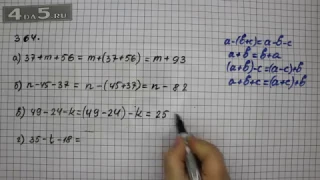 4DA5.RU
364.
а) 37+m+56 = m+(37+56) = m+93
б) n-45-37 = n-(45+37) = n-82
в) 49-24-k = (49-24)-k = 25
г) 35-t-18 =
a-(b+c)=a-b-c
a+b=b+a
(a+b)-c=(a-c)+b
a+b+c=(a+c)+b